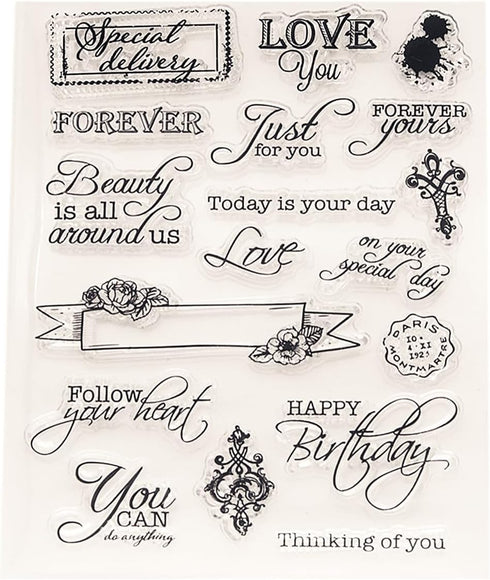 Special
delivery
LOVE
You
FOREVER
Just
for you
FOREVER
yours
Beauty
is all
around us
Today is your day
Love
on your
special day
PARIS
10
4 · XI
1925
MONTMARTRE
Follow
your heart
HAPPY
Birthday
You
CAN
do anything
Thinking of you